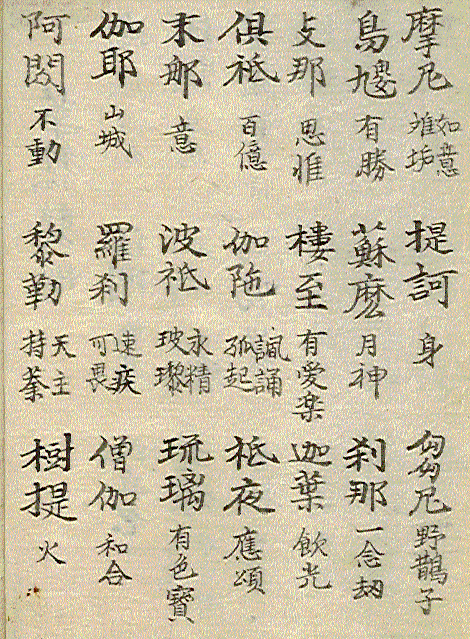 摩尼 如意離垢 提訶 身 芻尼 野鵲子
烏 有勝 蘇麼 月神 刹那 一念劫
支那 思惟 樓至 有愛楽 迦葉 飲光
俱祇 百億 伽陁 諷誦孤起 祇夜 應頌
末那 意 波祇 水精玻瓈 琉璃 有色寶
伽耶 山城 羅刹 速疾可畏 僧伽 和合
阿閦 不動 黎勒 天主持 樹提 火